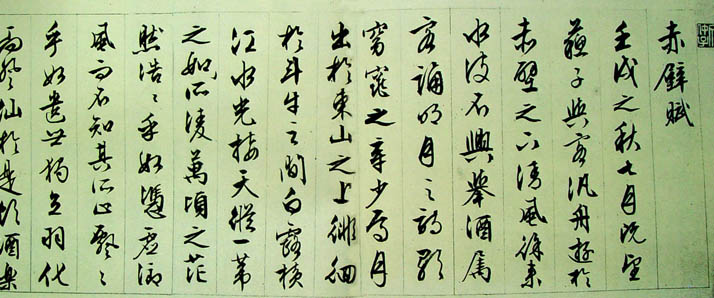 赤壁賦
壬戌之秋七月既望
蘇子與客汎舟遊於
赤壁之下清風徐來
水波不興舉酒屬
客誦明月之詩歌
窈窕之章少焉月
出於東山之上徘徊
於斗牛之間白露橫
江水光接天縱一葦
之如所凌萬頃之茫
然浩〻乎如憑虛御
風而不知其所止飄〻
乎如遺世獨立羽化
而登仙於是飲酒樂